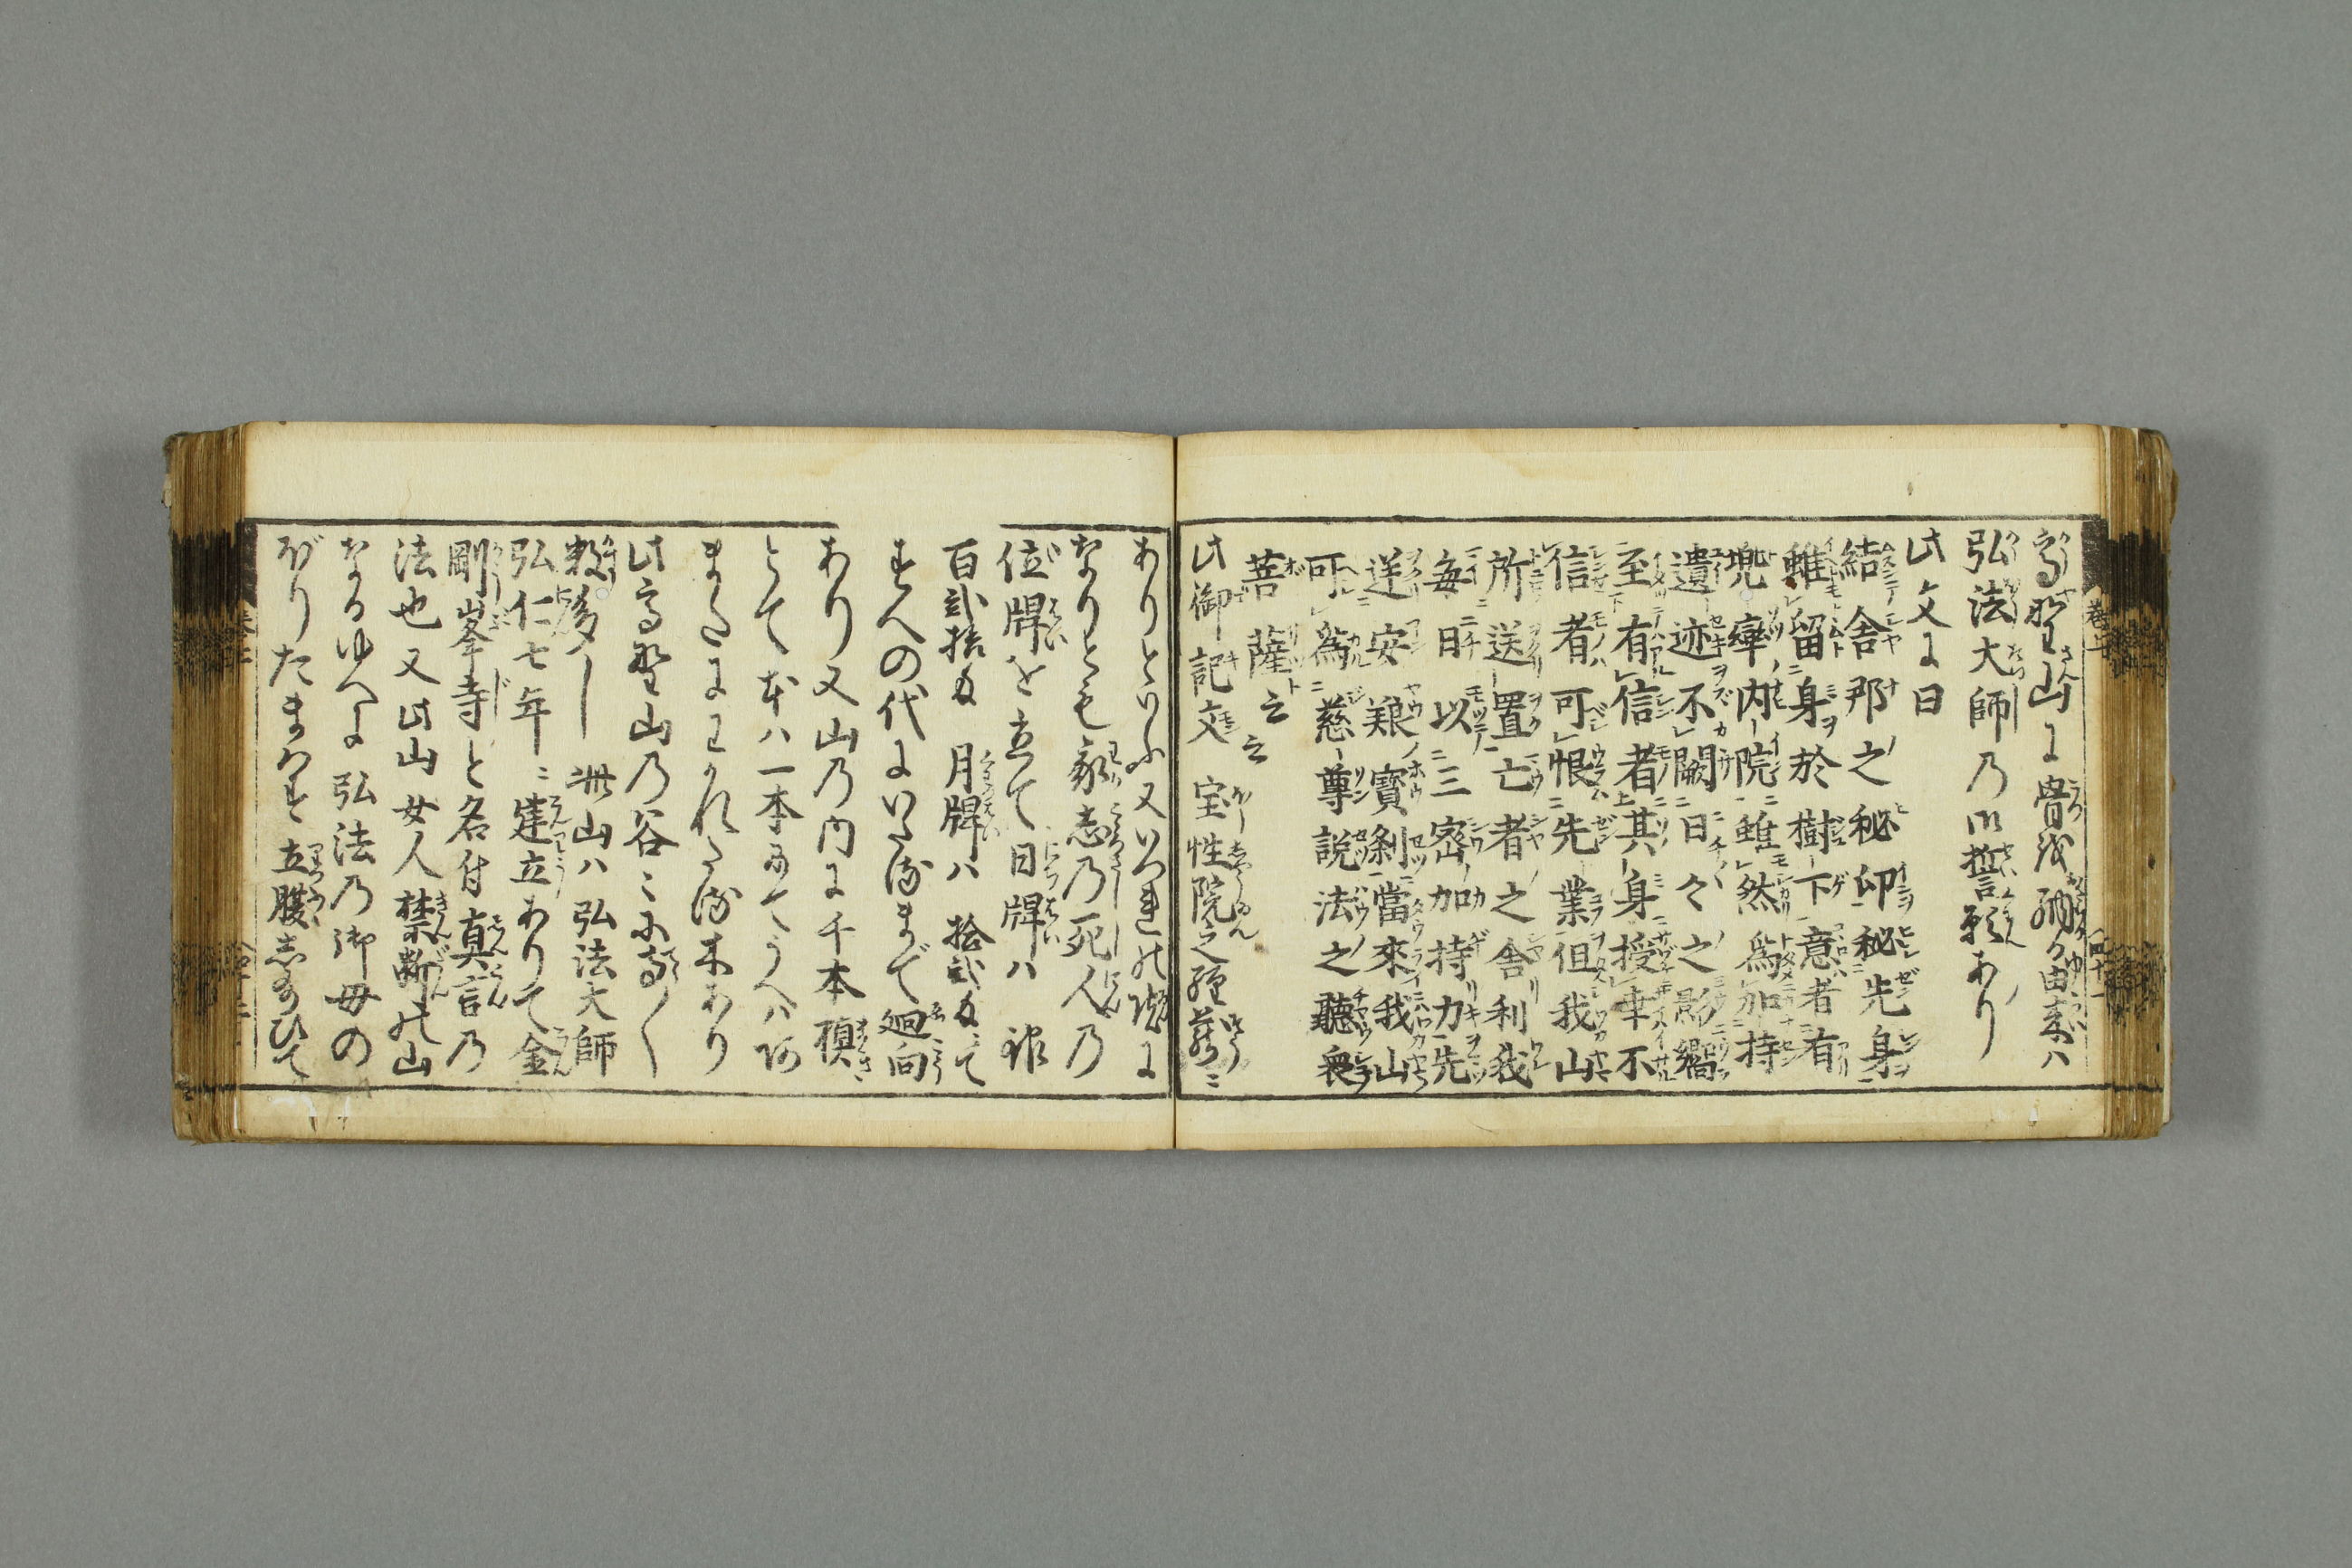 高野山に骨を納る由来ハ
弘法大師乃御誓願あり
此文に曰
結舎那之秘印秘先身
雖留身於樹下意者有
兜率内院雖然為加持
遺迹不闕日々之影嚮
至有信者其身授幸不
信者可恨先業但我山
所送置亡者之舎利我
毎日以三密加持力先
送安養寶刹當來我山
可為慈尊説法之聴衆
菩薩云云
此御記文宝性院之經蔵ニ
ありといふ又いつ連の
なりとも親志乃死人乃
位牌を立て日牌ハ銀
百弐拾匁月牌ハ拾弐匁にて
すへの代にいたるまで廻向
あり又山乃内に千本槙
とて本ハ一本にてうへハ
またにわかれたる木あり
此高野山乃谷々に寺〳〵
数多し此山ハ弘法大師
弘仁七年ニ建立ありて金
剛峯寺と名付真言乃
法也又此山女人禁断の山
なるゆへに弘法乃御母の
ぼりたまはず立腹し給ひて